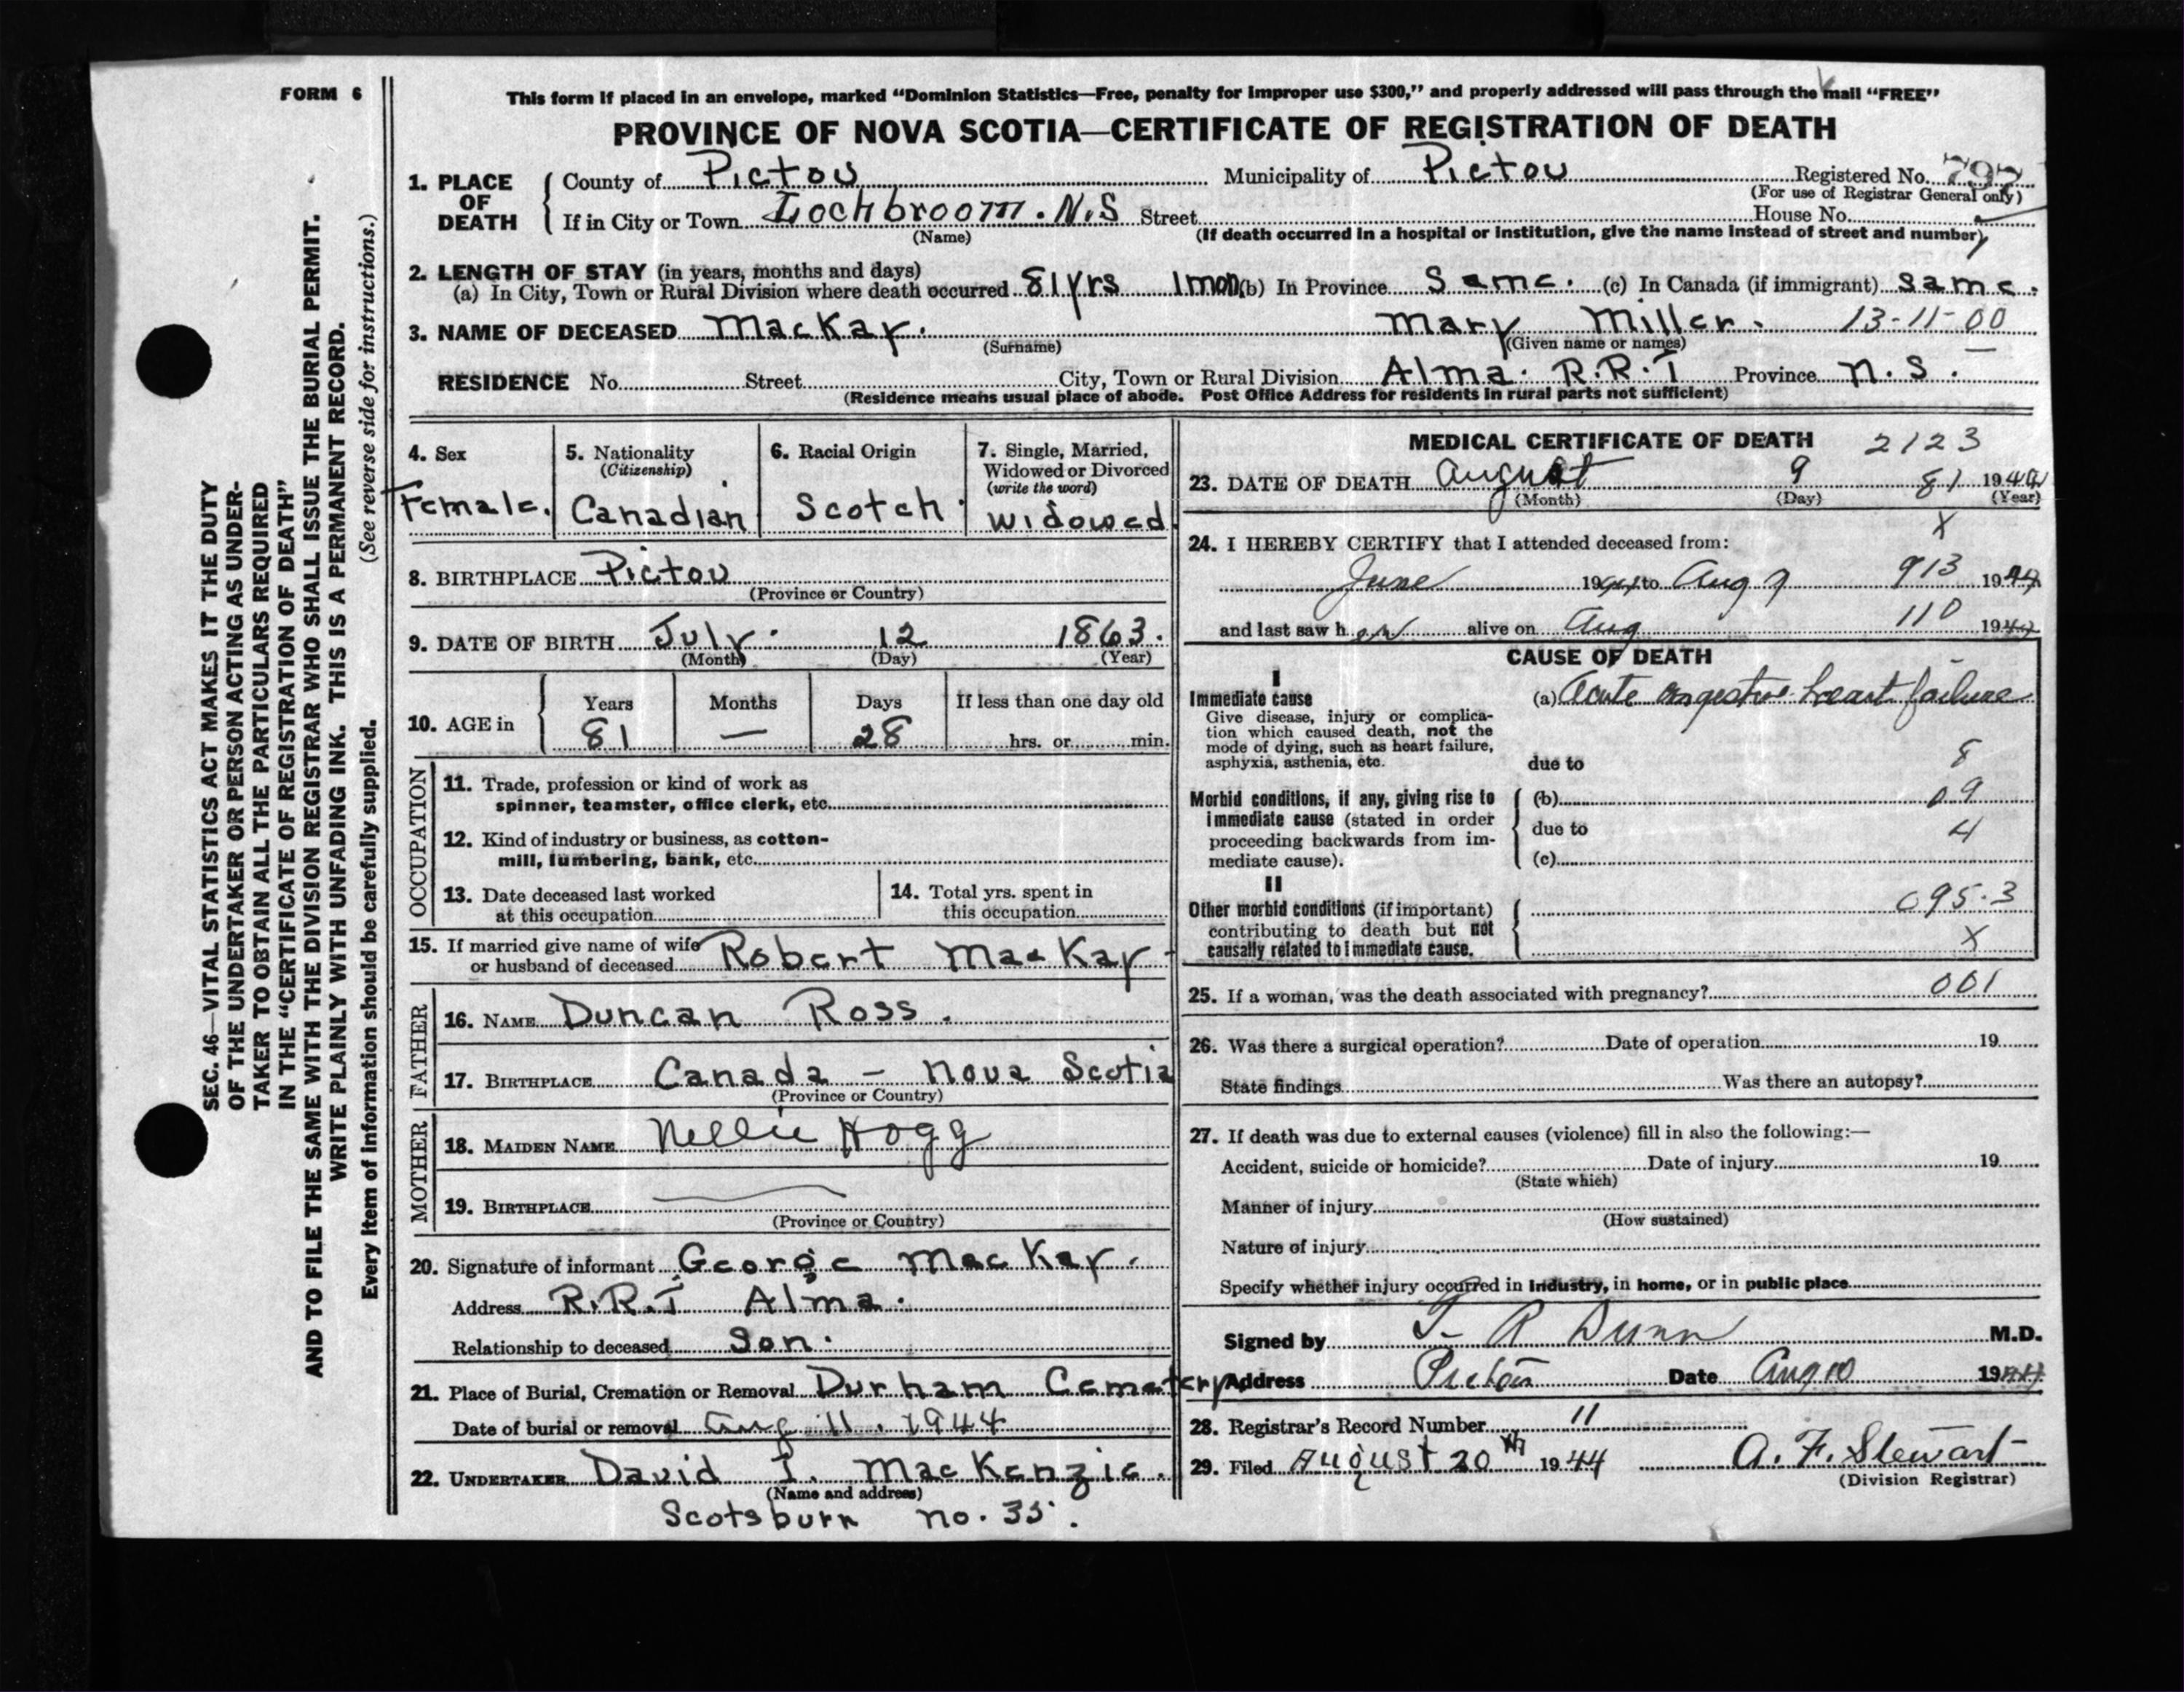 FORM 6
This form if placed in an envelope, marked “Dominion Statistics—Free, penalty for improper use $300,” and properly addressed will pass through the mail “FREE”
PROVINCE OF NOVA SCOTIA—CERTIFICATE OF REGISTRATION OF DEATH
SEC. 46—VITAL STATISTICS ACT MAKES IT THE DUTY
OF THE UNDERTAKER OR PERSON ACTING AS UNDER-
TAKER TO OBTAIN ALL THE PARTICULARS REQUIRED
IN THE “CERTIFICATE OF REGISTRATION OF DEATH”
AND TO FILE THE SAME WITH THE DIVISION REGISTRAR WHO SHALL ISSUE THE BURIAL PERMIT.
WRITE PLAINLY WITH UNFADING INK. THIS IS A PERMANENT RECORD.
Every item of information should be carefully supplied. (See reverse side for instructions.)
1. PLACE OF DEATH
County of Pictou Municipality of Pictou Registered No. 797
(For use of Registrar General only)
If in City or Town Lochbroom. N.S Street House No.
(Name) (If death occurred in a hospital or institution, give the name instead of street and number)
2. LENGTH OF STAY (in years, months and days)
(a) In City, Town or Rural Division where death occurred 81 yrs 1 mon (b) In Province Same. (c) In Canada (if immigrant) same.
3. NAME OF DECEASED MacKay. Mary Miller. 13-11-00
(Surname) (Given name or names)
RESIDENCE No. Street City, Town or Rural Division Alma. R.R.I Province N.S.
(Residence means usual place of abode. Post Office Address for residents in rural parts not sufficient)
4. Sex
Female.
5. Nationality
(Citizenship)
Canadian
6. Racial Origin
Scotch
7. Single, Married,
Widowed or Divorced
(write the word)
widowed
8. BIRTHPLACE Pictou
(Province or Country)
9. DATE OF BIRTH July. 12 1863.
(Month) (Day) (Year)
10. AGE in
Years Months Days If less than one day old
81 — 28 hrs. or min.
OCCUPATION
11. Trade, profession or kind of work as
spinner, teamster, office clerk, etc.
12. Kind of industry or business, as cotton-
mill, lumbering, bank, etc.
13. Date deceased last worked
at this occupation
14. Total yrs. spent in
this occupation
15. If married give name of wife
or husband of deceased Robert MacKay
FATHER
16. NAME Duncan Ross.
17. BIRTHPLACE Canada - Nova Scotia
(Province or Country)
MOTHER
18. MAIDEN NAME Nellie Hogg
19. BIRTHPLACE
(Province or Country)
20. Signature of informant George MacKay.
Address R.R.I Alma.
Relationship to deceased Son.
21. Place of Burial, Cremation or Removal Durham Cemetery
Date of burial or removal Aug 11. 1944
22. UNDERTAKER David I. MacKenzie.
(Name and address)
Scotsburn no. 35.
MEDICAL CERTIFICATE OF DEATH 2123
23. DATE OF DEATH August 9 81 1944
(Month) (Day) (Year)
X
24. I HEREBY CERTIFY that I attended deceased from:
June 1944 to Aug 9 913 1944
and last saw her alive on Aug 110 1944
CAUSE OF DEATH
I
Immediate cause (a) Acute congestive heart failure
Give disease, injury or complica-
tion which caused death, not the
mode of dying, such as heart failure,
asphyxia, asthenia, etc.
due to 8
Morbid conditions, if any, giving rise to (b) 09
immediate cause (stated in order due to 4
proceeding backwards from im-
mediate cause). (c)
II
Other morbid conditions (if important) 095.3
contributing to death but not
causally related to immediate cause. X
25. If a woman, was the death associated with pregnancy? 001
26. Was there a surgical operation? Date of operation 19
State findings Was there an autopsy?
27. If death was due to external causes (violence) fill in also the following:—
Accident, suicide or homicide? Date of injury 19
(State which)
Manner of injury
(How sustained)
Nature of injury
Specify whether injury occurred in industry, in home, or in public place
Signed by R Dunn M.D.
Address Pictou Date Aug 10 1944
28. Registrar's Record Number 11
29. Filed August 20th 1944 A. F. Stewart
(Division Registrar)